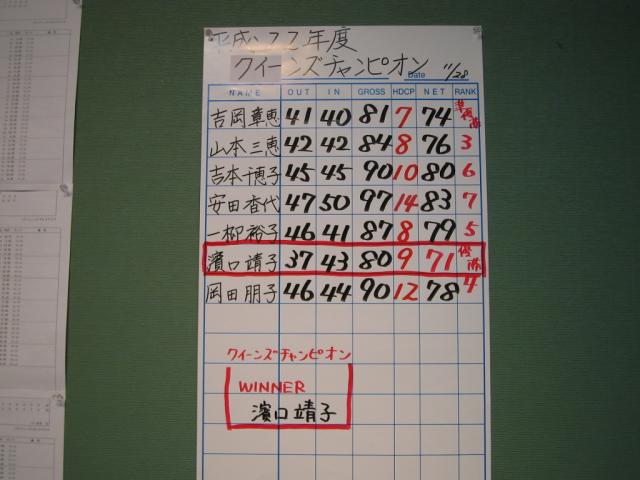 平成22年度
クイーンズチャンピオン Date 11/28
NAME OUT IN GROSS HDCP NET RANK
吉岡章恵 41 40 81 7 74 準優勝
山本三恵 42 42 84 8 76 3
吉本千恵子 45 45 90 10 80 6
安田杏代 47 50 97 14 83 7
一柳裕子 46 41 87 8 79 5
濱口靖子 37 43 80 9 71 優勝
岡田朋子 46 44 90 12 78 4
クイーンズチャンピオン
WINNER
濱口靖子